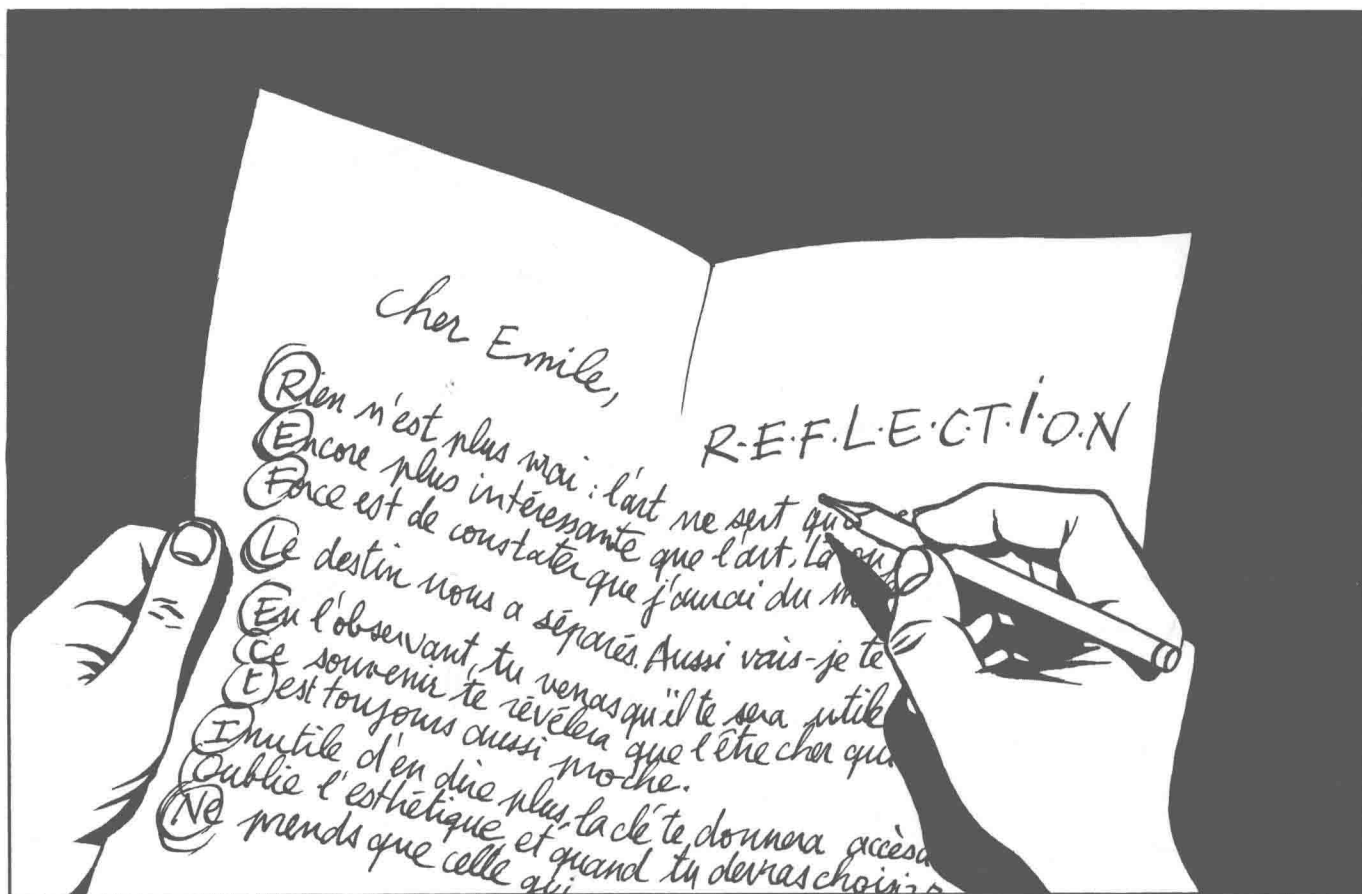 Cher Emile,
Rien n'est plus vrai : l'art ne sert qu'à
Encore plus intéressante que l'art. Là où
Force est de constater que j'aurai du m
Le destin nous a séparés. Aussi vais-je te
En l'observant, tu verras qu'il te sera utile
Ce souvenir te révélera que l'être cher qui
T'est toujours aussi proche.
Inutile d'en dire plus, la clé te donnera accès
Oublie l'esthétique et quand tu devras choisir
Ne prends que celle qui
R.E.F.L.E.C.T.I.O.N